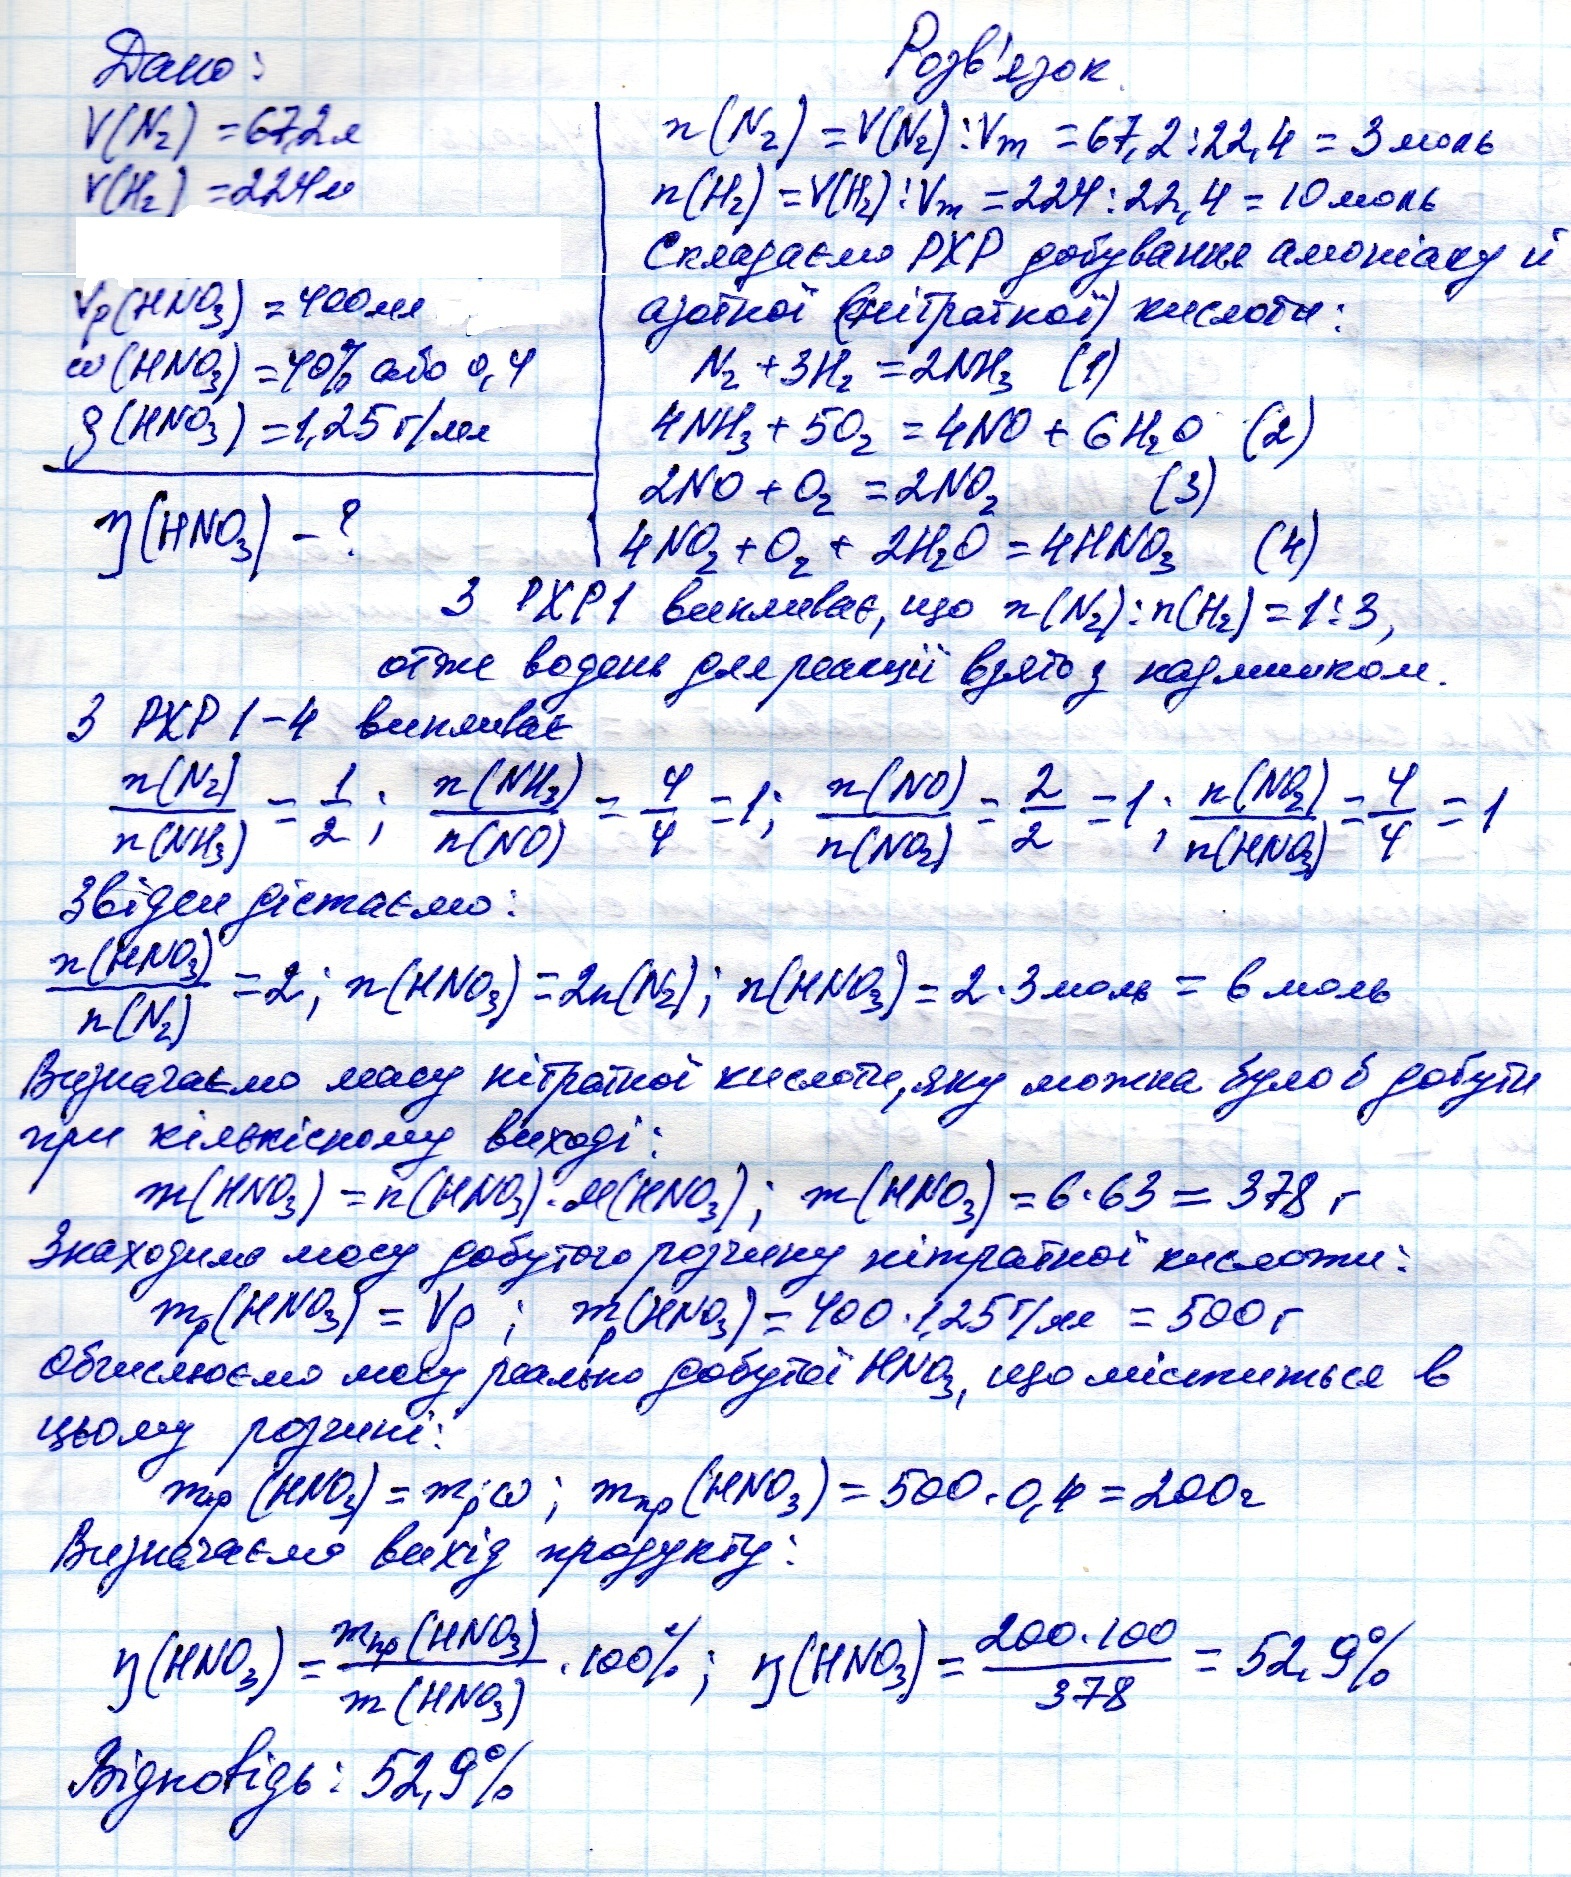 Дано:
V(N₂) = 67,2л
V(H₂) = 224л
Vр(HNO₃) = 400мл
ω(HNO₃) = 40% або 0,4
ρ(HNO₃) = 1,25 г/мл
η(HNO₃) - ?
Розв'язок
n(N₂) = V(N₂) : Vm = 67,2 : 22,4 = 3 моль
n(H₂) = V(H₂) : Vm = 224 : 22,4 = 10 моль
Складаємо РХР добування амоніаку й
азотної (нітратної) кислоти:
N₂ + 3H₂ = 2NH₃ (1)
4NH₃ + 5O₂ = 4NO + 6H₂O (2)
2NO + O₂ = 2NO₂ (3)
4NO₂ + O₂ + 2H₂O = 4HNO₃ (4)
З РХР1 випливає, що n(N₂) : n(H₂) = 1 : 3,
отже водень для реакції взято з надлишком.
З РХР 1-4 випливає
n(N₂)/n(NH₃) = 1/2; n(NH₃)/n(NO) = 4/4 = 1; n(NO)/n(NO₂) = 2/2 = 1; n(NO₂)/n(HNO₃) = 4/4 = 1
Звідси дістаємо:
n(HNO₃)/n(N₂) = 2; n(HNO₃) = 2n(N₂); n(HNO₃) = 2·3 моль = 6 моль
Визначаємо масу нітратної кислоти, яку можна було б добути
при кількісному виході:
m(HNO₃) = n(HNO₃)·M(HNO₃); m(HNO₃) = 6·63 = 378 г
Знаходимо масу добутого розчину нітратної кислоти:
mр(HNO₃) = Vρ; mр(HNO₃) = 400·1,25 г/мл = 500 г
Обчислюємо масу реально добутої HNO₃, що міститься в
цьому розчині:
mпр(HNO₃) = mр·ω; mпр(HNO₃) = 500·0,4 = 200г
Визначаємо вихід продукту:
η(HNO₃) = mпр(HNO₃)/m(HNO₃) ·100%; η(HNO₃) = 200·100/378 = 52,9%
Відповідь: 52,9%